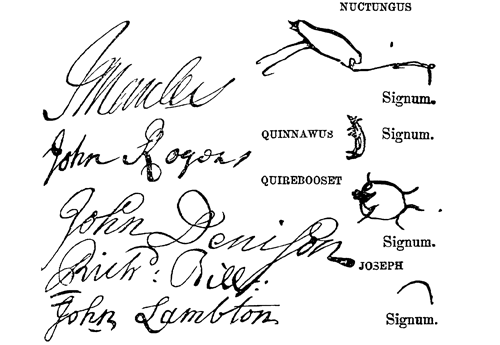 NUCTUNGUS
Signum.
QUINNAWUS Signum.
John Rogers
QUIREBOOSET
John Denison
Signum.
JOSEPH
Rich.d Bill.
John Lambton
Signum.